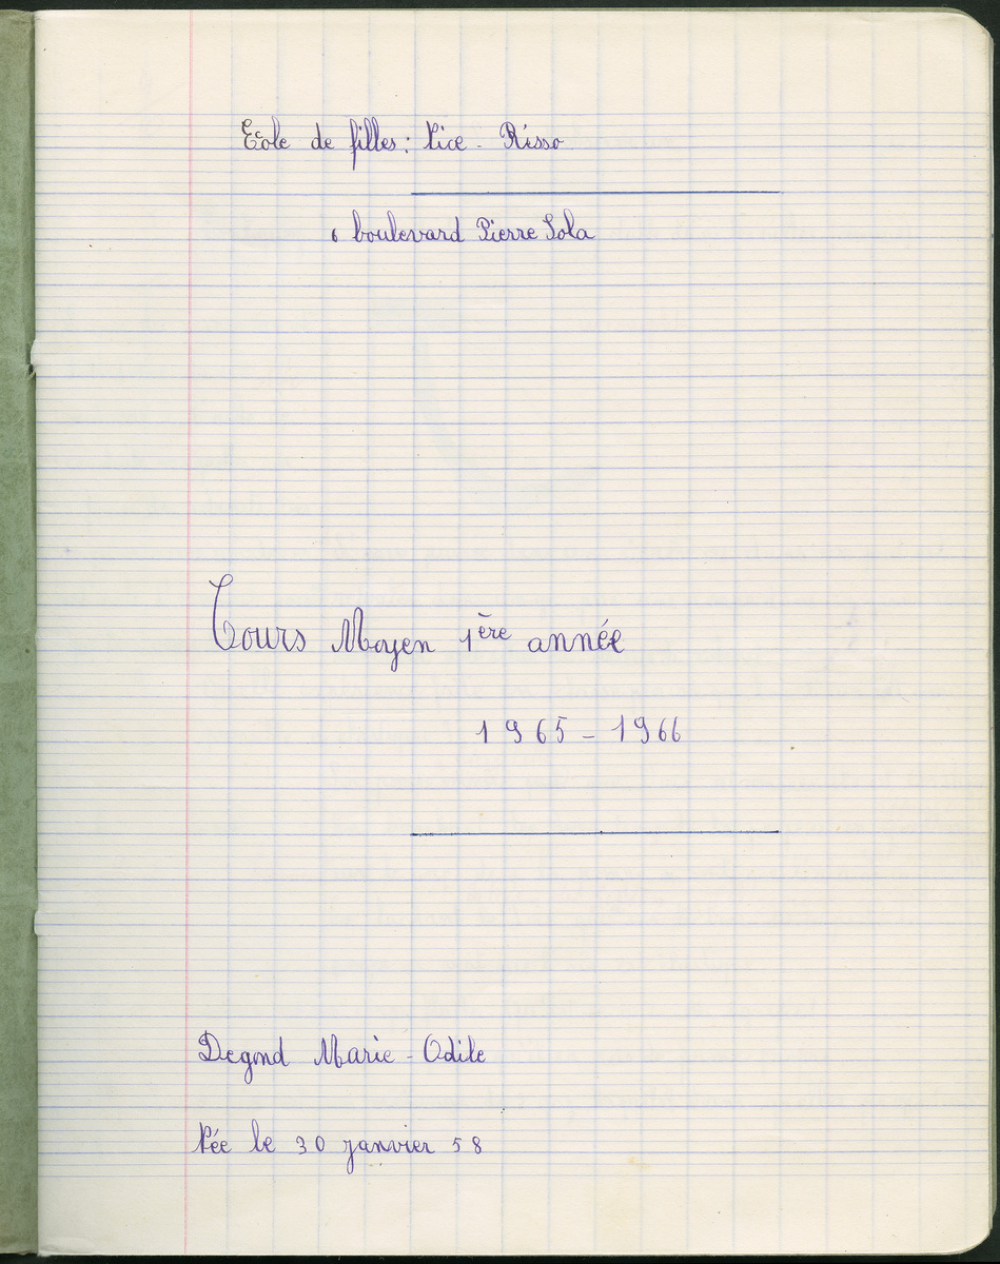 Ecole de filles: Nice - Risso
6 boulevard Pierre Sola
Cours Moyen 1ère année
1965 - 1966
Degond Marie - Odile
Née le 30 janvier 58